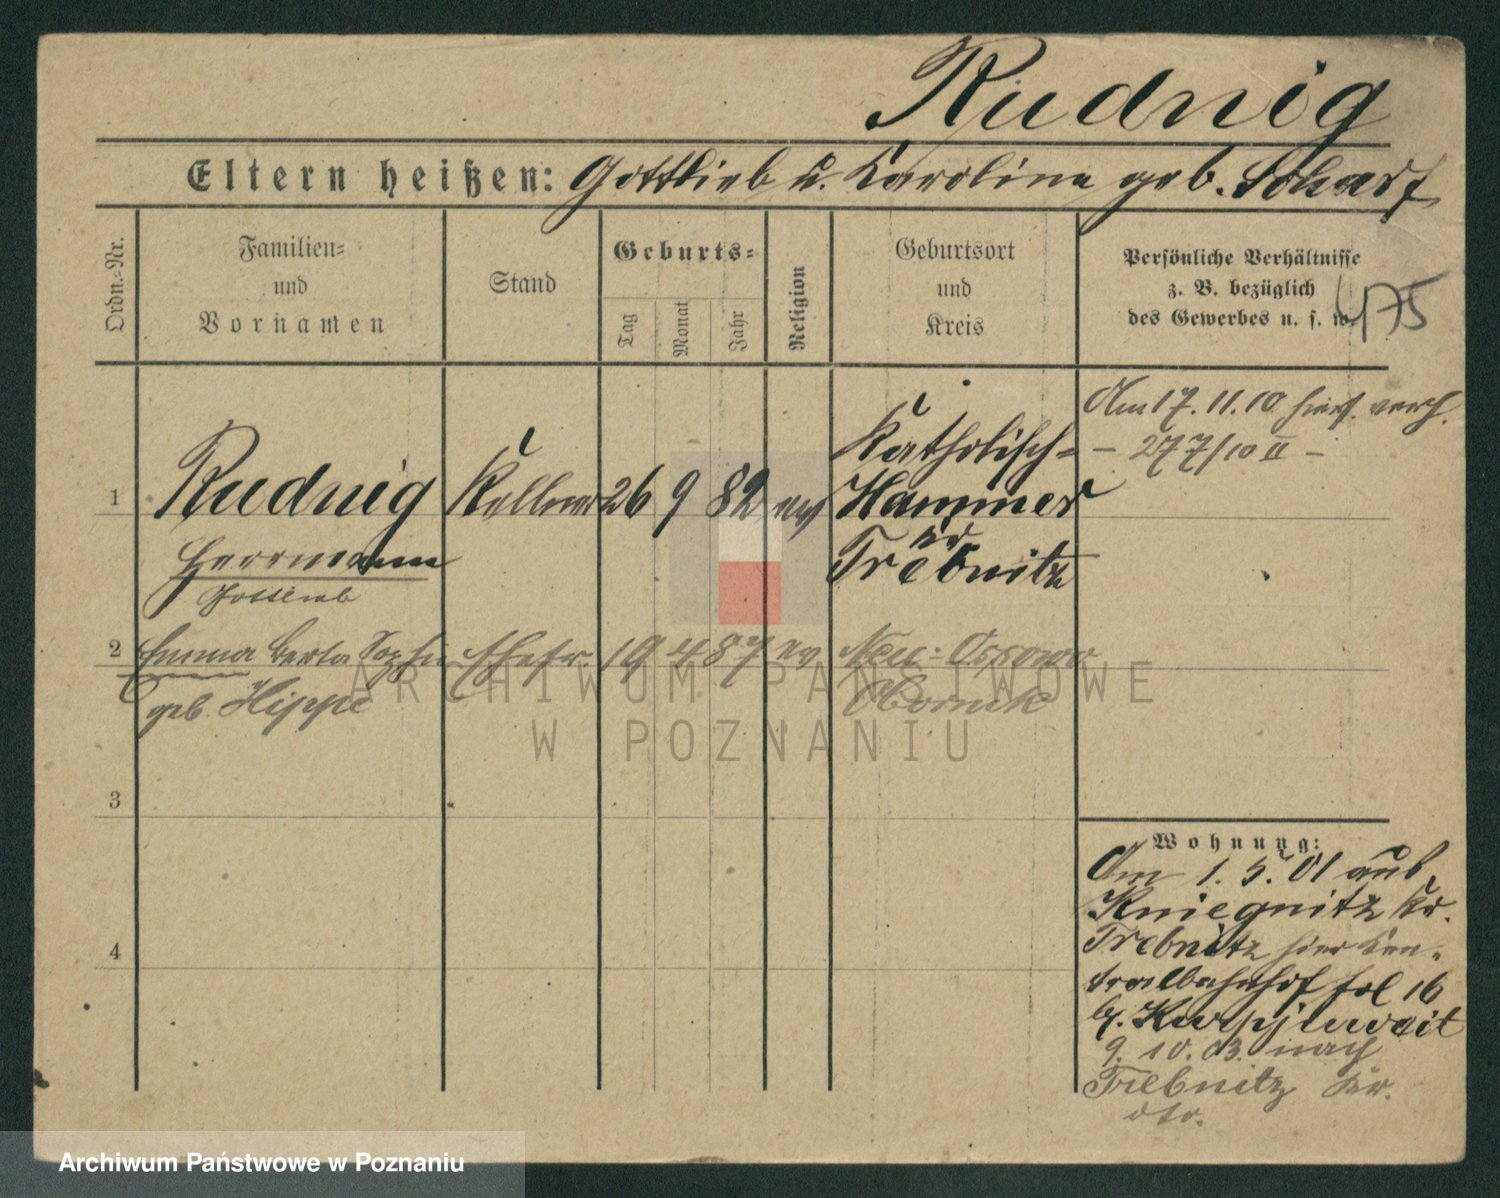 Rudnig
Eltern heißen: Gottlieb u. Karoline geb. Scharf
Ordn.-Nr.
Familien-
und
Vornamen
Stand
Geburts-
Tag
Monat
Jahr
Religion
Geburtsort
und
Kreis
Persönliche Verhältnisse
z. B. bezüglich
des Gewerbes u. s. w.
475
1
Rudnig
Herrmann
Gottlieb
Kellner
26 9 82 ev
Katholisch-
Hammer
Kr
Trebnitz
Am 17.11.10 hier verh.
- 277/10 II -
2
Emma Berta Sophie
geb Hippe
Ehefr.
19 4 87 ev
Neu-Ossowo
Obornik
3
4
Wohnung:
Am 1.5.01 aus
Kniegnitz Kr.
Trebnitz hier Cen-
tralbahnhof fol 16
b.
9.10.03. nach
Trebnitz Kr.
dto.
ARCHIWUM PAŃSTWOWE
W POZNANIU
Archiwum Państwowe w Poznaniu